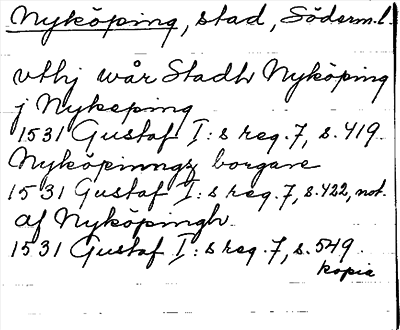 Nyköping, stad, Söderm.l.
vthj wår Stadh Nyköping
j Nykeping
1531 Gustaf I:s reg. 7, s. 419.
Nyköpinngz borgare
1531 Gustaf I:s reg. 7, s. 422, not.
af Nyköpingh
1531 Gustaf I:s reg. 7, s. 549.
kopia